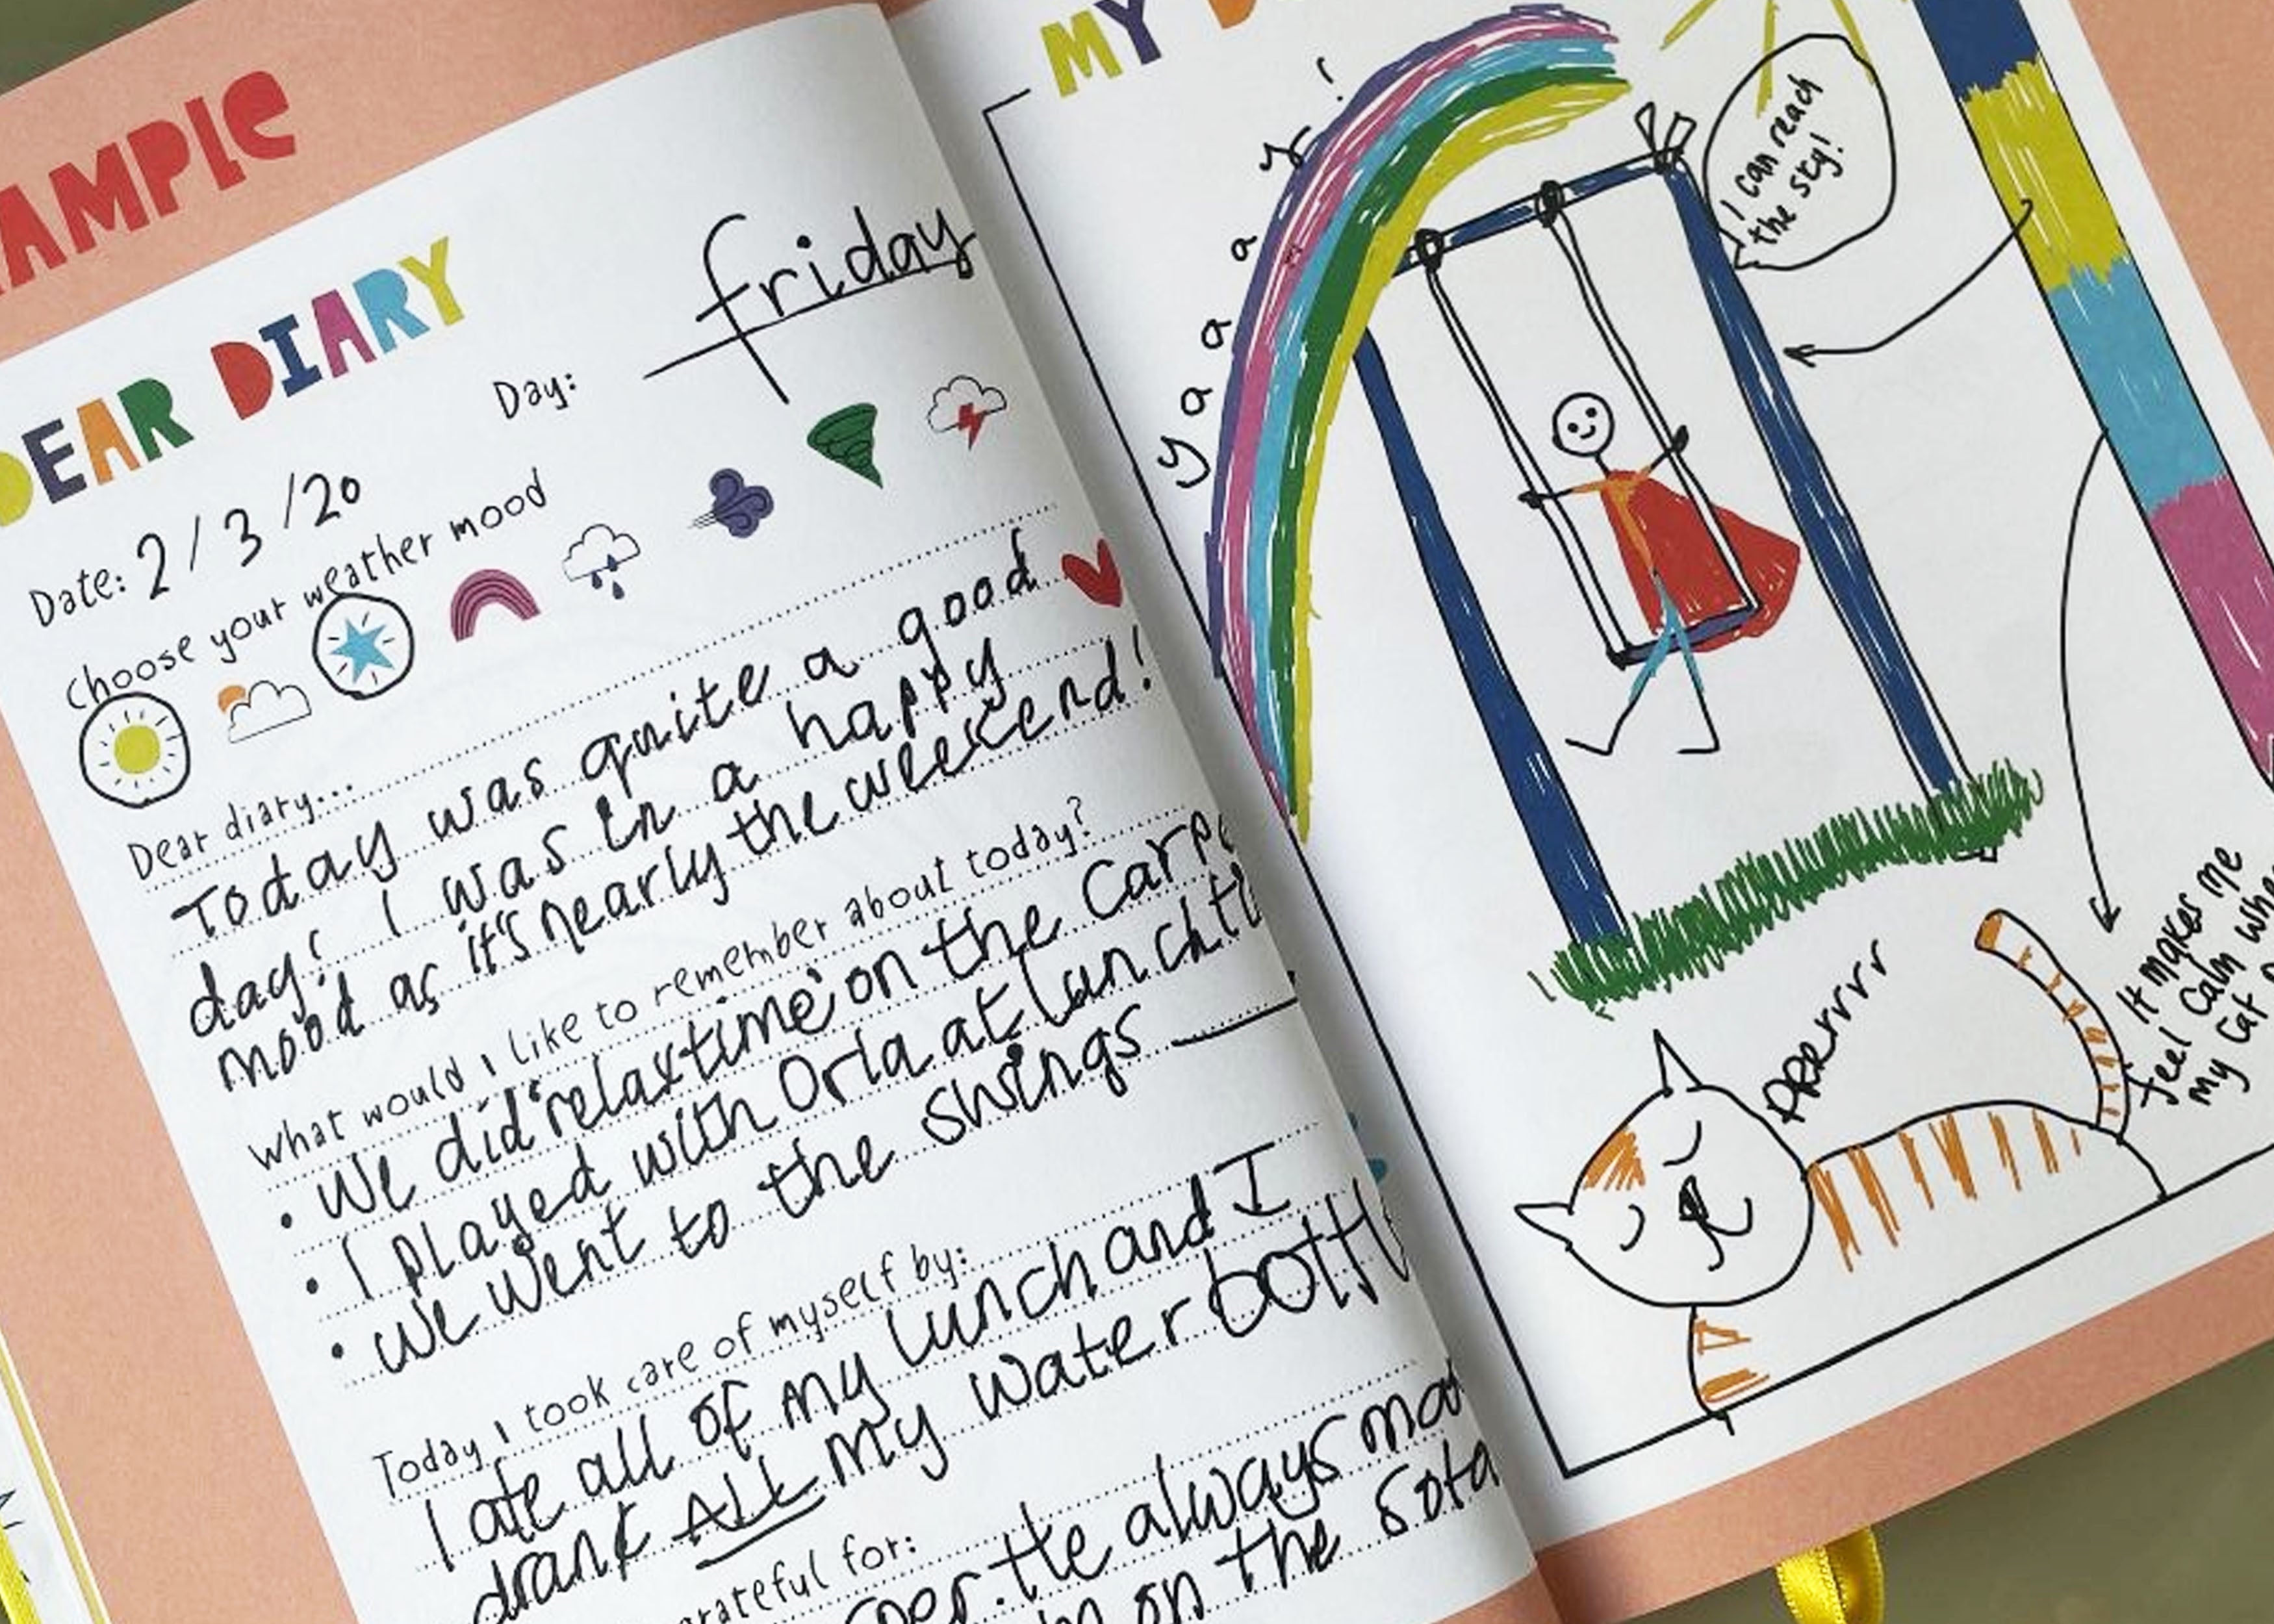 DEAR DIARY
Day: friday
Date: 2/3/20
Choose your weather mood
Dear diary...
Today was quite a good
day! I was in a happy
mood as it's nearly the weekend!
What would I like to remember about today?
• We did 'relaxtime' on the
• I played with Orla at
• We went to the swings
Today I took care of myself by:
I ate all of my lunch and I
drank ALL my water
for:
He always
on the
MY
yaaay!
I can reach
the sky!
PRRrrrr
It makes me
feel calm
my cat